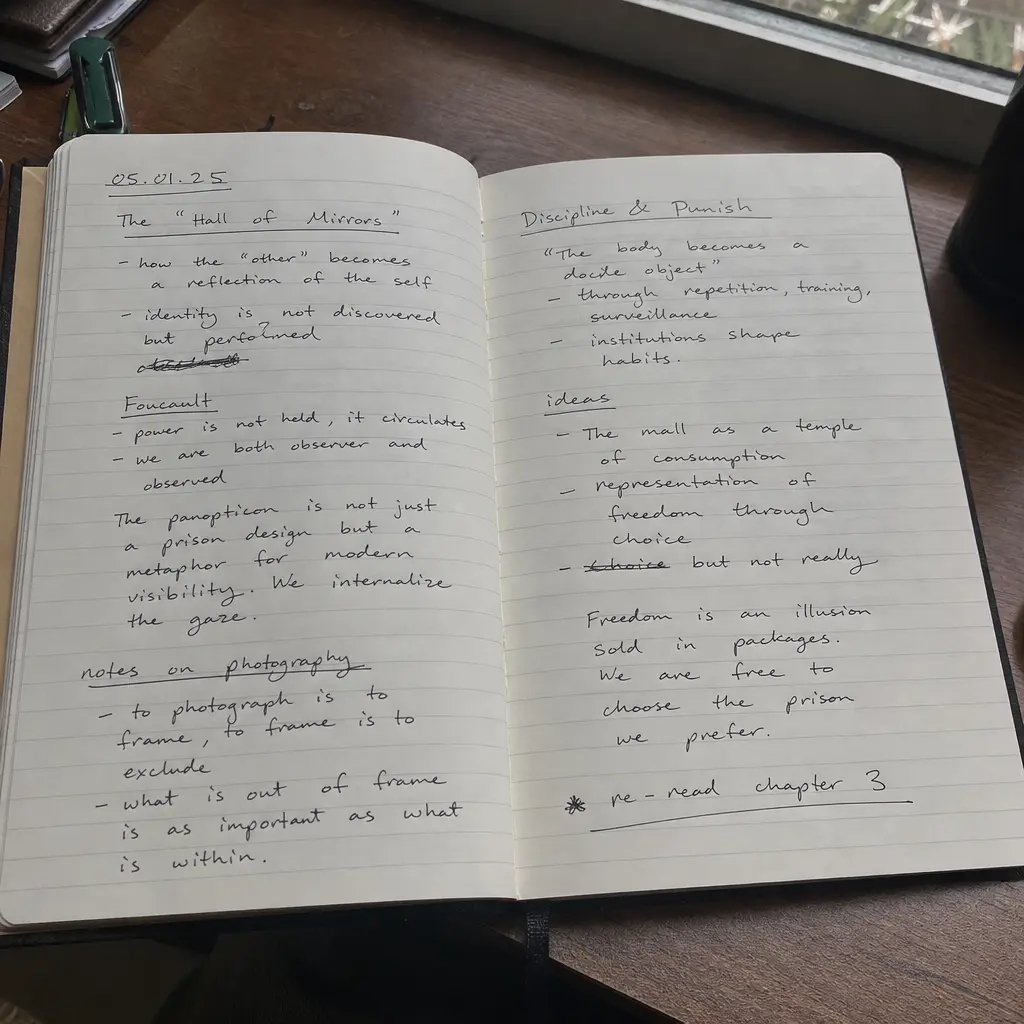 05.01.25
The "Hall of Mirrors"
- how the "other" becomes
a reflection of the self
- identity is not discovered
?
but performed
Foucault
- power is not held, it circulates
- we are both observer and
observed
The panopticon is not just
a prison design but a
metaphor for modern
visibility. We internalize
the gaze.
notes on photography
- to photograph is to
frame, to frame is to
exclude
- what is out of frame
is as important as what
is within.
Discipline & Punish
"The body becomes a
docile object"
- through repetition, training,
surveillance
- institutions shape
habits.
ideas
- The mall as a temple
of consumption
- representation of
freedom through
choice
- choice but not really
Freedom is an illusion
sold in packages.
We are free to
choose the prison
we prefer.
* re-read chapter 3